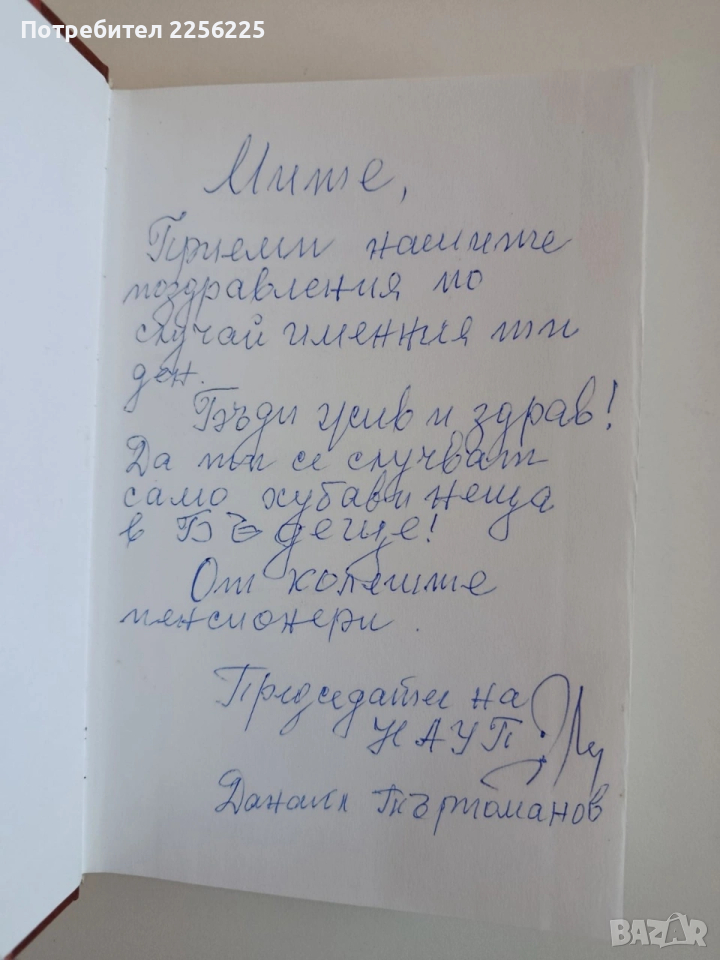 Потребител 2256225
Мите,
Приеми нашите
поздравления по
случай именния ти
ден.
Бъди жив и здрав!
Да ти се случват
само хубави неща
в Бъдеще!
От колегите
пенсионери.
Председател на
НАУП
Данаил Търтоманов
BAZAR